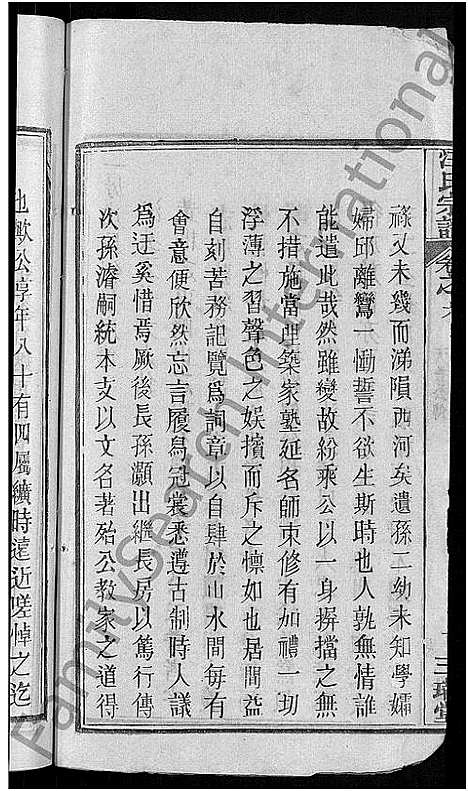 祿又未幾而涕隕西河矣遺孫二幼未知學孀
婦邱離鸞一慟誓不欲生斯時也人孰無情誰
能遣此哉然雖變故紛乘公以一身摒擋之無
不措施當理築家塾延名師束修有加禮一切
浮薄之習聲色之娛擯而斥之懍如也居閒益
自刻苦務記覽爲詞章以自肆於山水間每有
會意便欣然忘言履舄冠裳悉遵古制時人議
爲迂奚惜焉厥後長孫灝出繼長房以篤行傳
次孫濬嗣統本支以文名著殆公教家之道得
也歟公享年八十有四屬纊時遠近嗟悼之迄
氏宗譜
卷之
三
堂
FamilySearch International